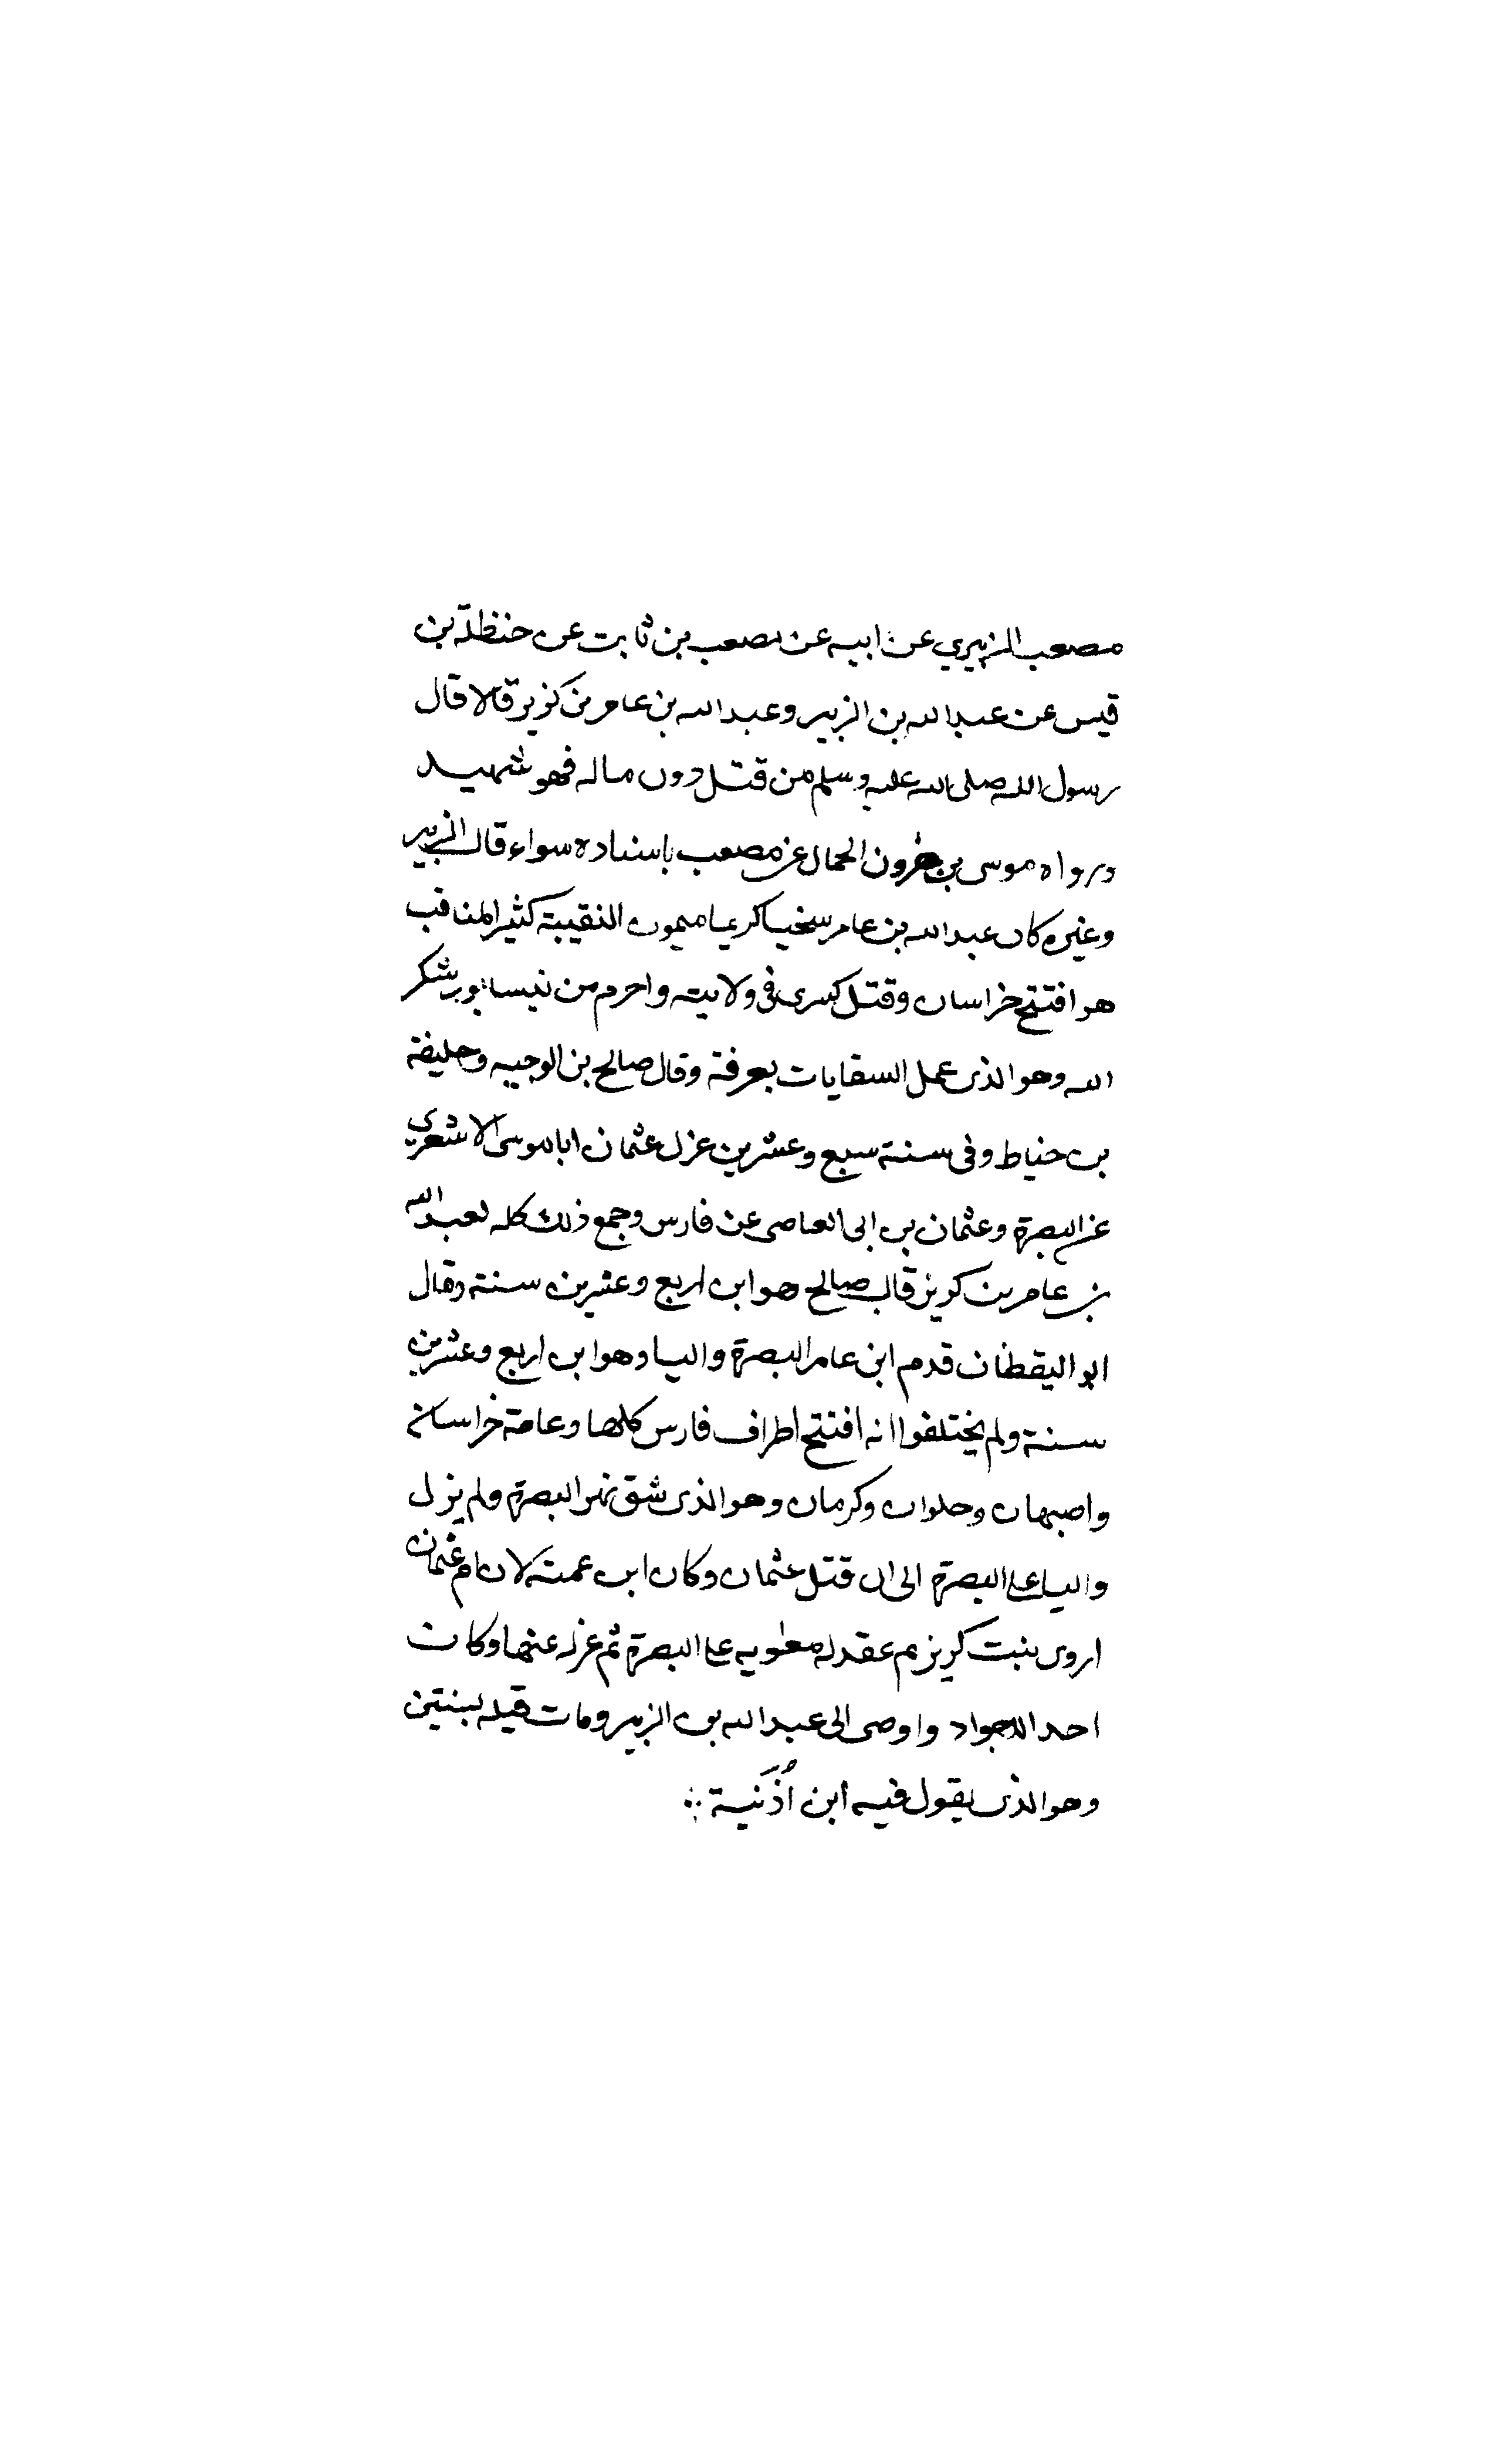 مصعب الزبيري عن ابيه عن مصعب بن ثابت عن حنظلة بن
قيس عن عبد الله بن الزبير وعبد الله بن عامر بن كريز قالا قال
رسول الله صلى الله عليه وسلم من قتل دون ماله فهو شهيد
ورواه موسى بن هرون الحمال عن مصعب باسناده سواء قال الزبير
وغيره كان عبد الله بن عامر سخيا كريما ميمون النقيبة كثير المناقب
هو افتتح خراسان وقتل كسرى في ولايته واحرم من نيسابور شكر
الله وهو الذي عمل السقايات بعرفة وقال صالح بن الوجيه وخليفة
بن خياط وفي سنة سبع وعشرين عزل عثمان ابا موسى الاشعري
عن البصرة وعثمان بن ابي العاصي عن فارس وجمع ذلك كله لعبد الله
بن عامر بن كريز قال صالح هو ابن اربع وعشرين سنة وقال
ابو اليقظان قدم ابن عامر البصرة واليا وهو ابن اربع وعشرين
سنة ولم يختلفوا انه افتتح اطراف فارس كلها وعامة خراسان
واصبهان وحلوان وكرمان وهو الذي شق نهر البصرة ولم يزل
واليا على البصرة الى ان قتل عثمان وكان ابن عمته لان ام عثمان
اروى بنت كريز م عقد له معوية على البصرة ثم عزله عنها وكان
احد الاجواد واوصى الى عبد الله بن الزبير ومات قبله بسنتين
وهو الذي يقول فيه ابن أذنية